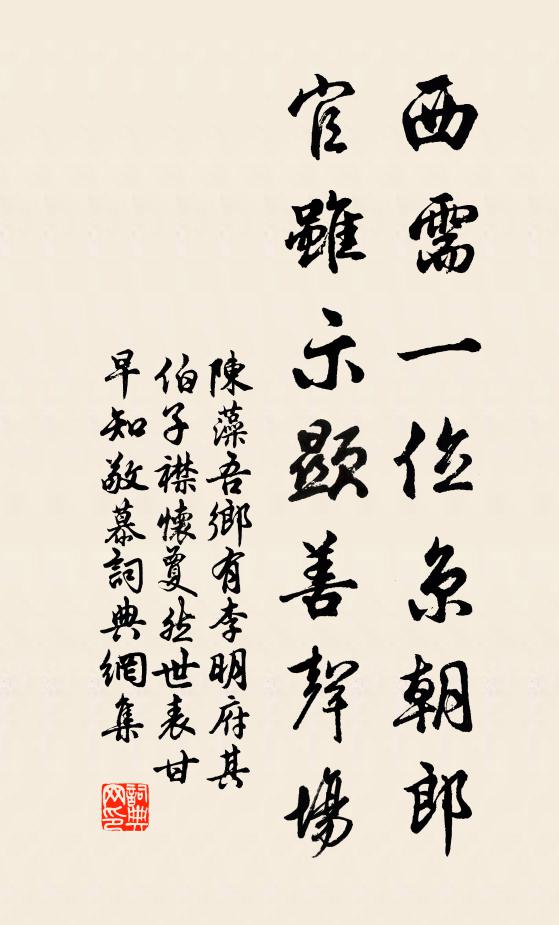 西需一位京朝郎
官雖示顯善聲場
陳藻吾鄉有李明府其
伯子襟懷夐然世表甘
早知敬慕詞典網集
詞典網印